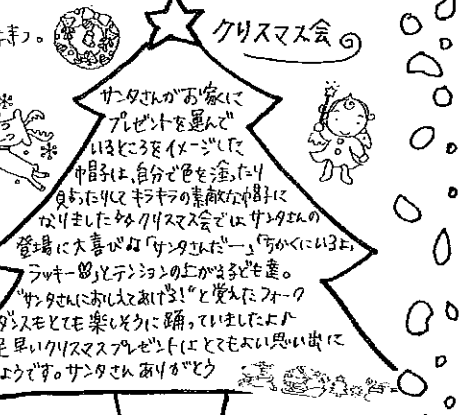 待つ。
クリスマス会
サンタさんがお家に
プレゼントを運んで
いるところをイメージして
帽子は、自分で色を塗ったり
貼ったりして キラキラの素敵な帽子に
なりました クリスマス会では サンタさんの
登場に大喜び♪「サンタさんだー」「ちかくにいるよ、
ラッキー」とテンションの上がる子ども達。
"サンタさんにおしえてあげる!"と覚えたフォーク
ダンスもとても楽しそうに踊っていましたよ♪
足早いクリスマスプレゼントは とてもよい思い出に
ようです。サンタさん ありがとう